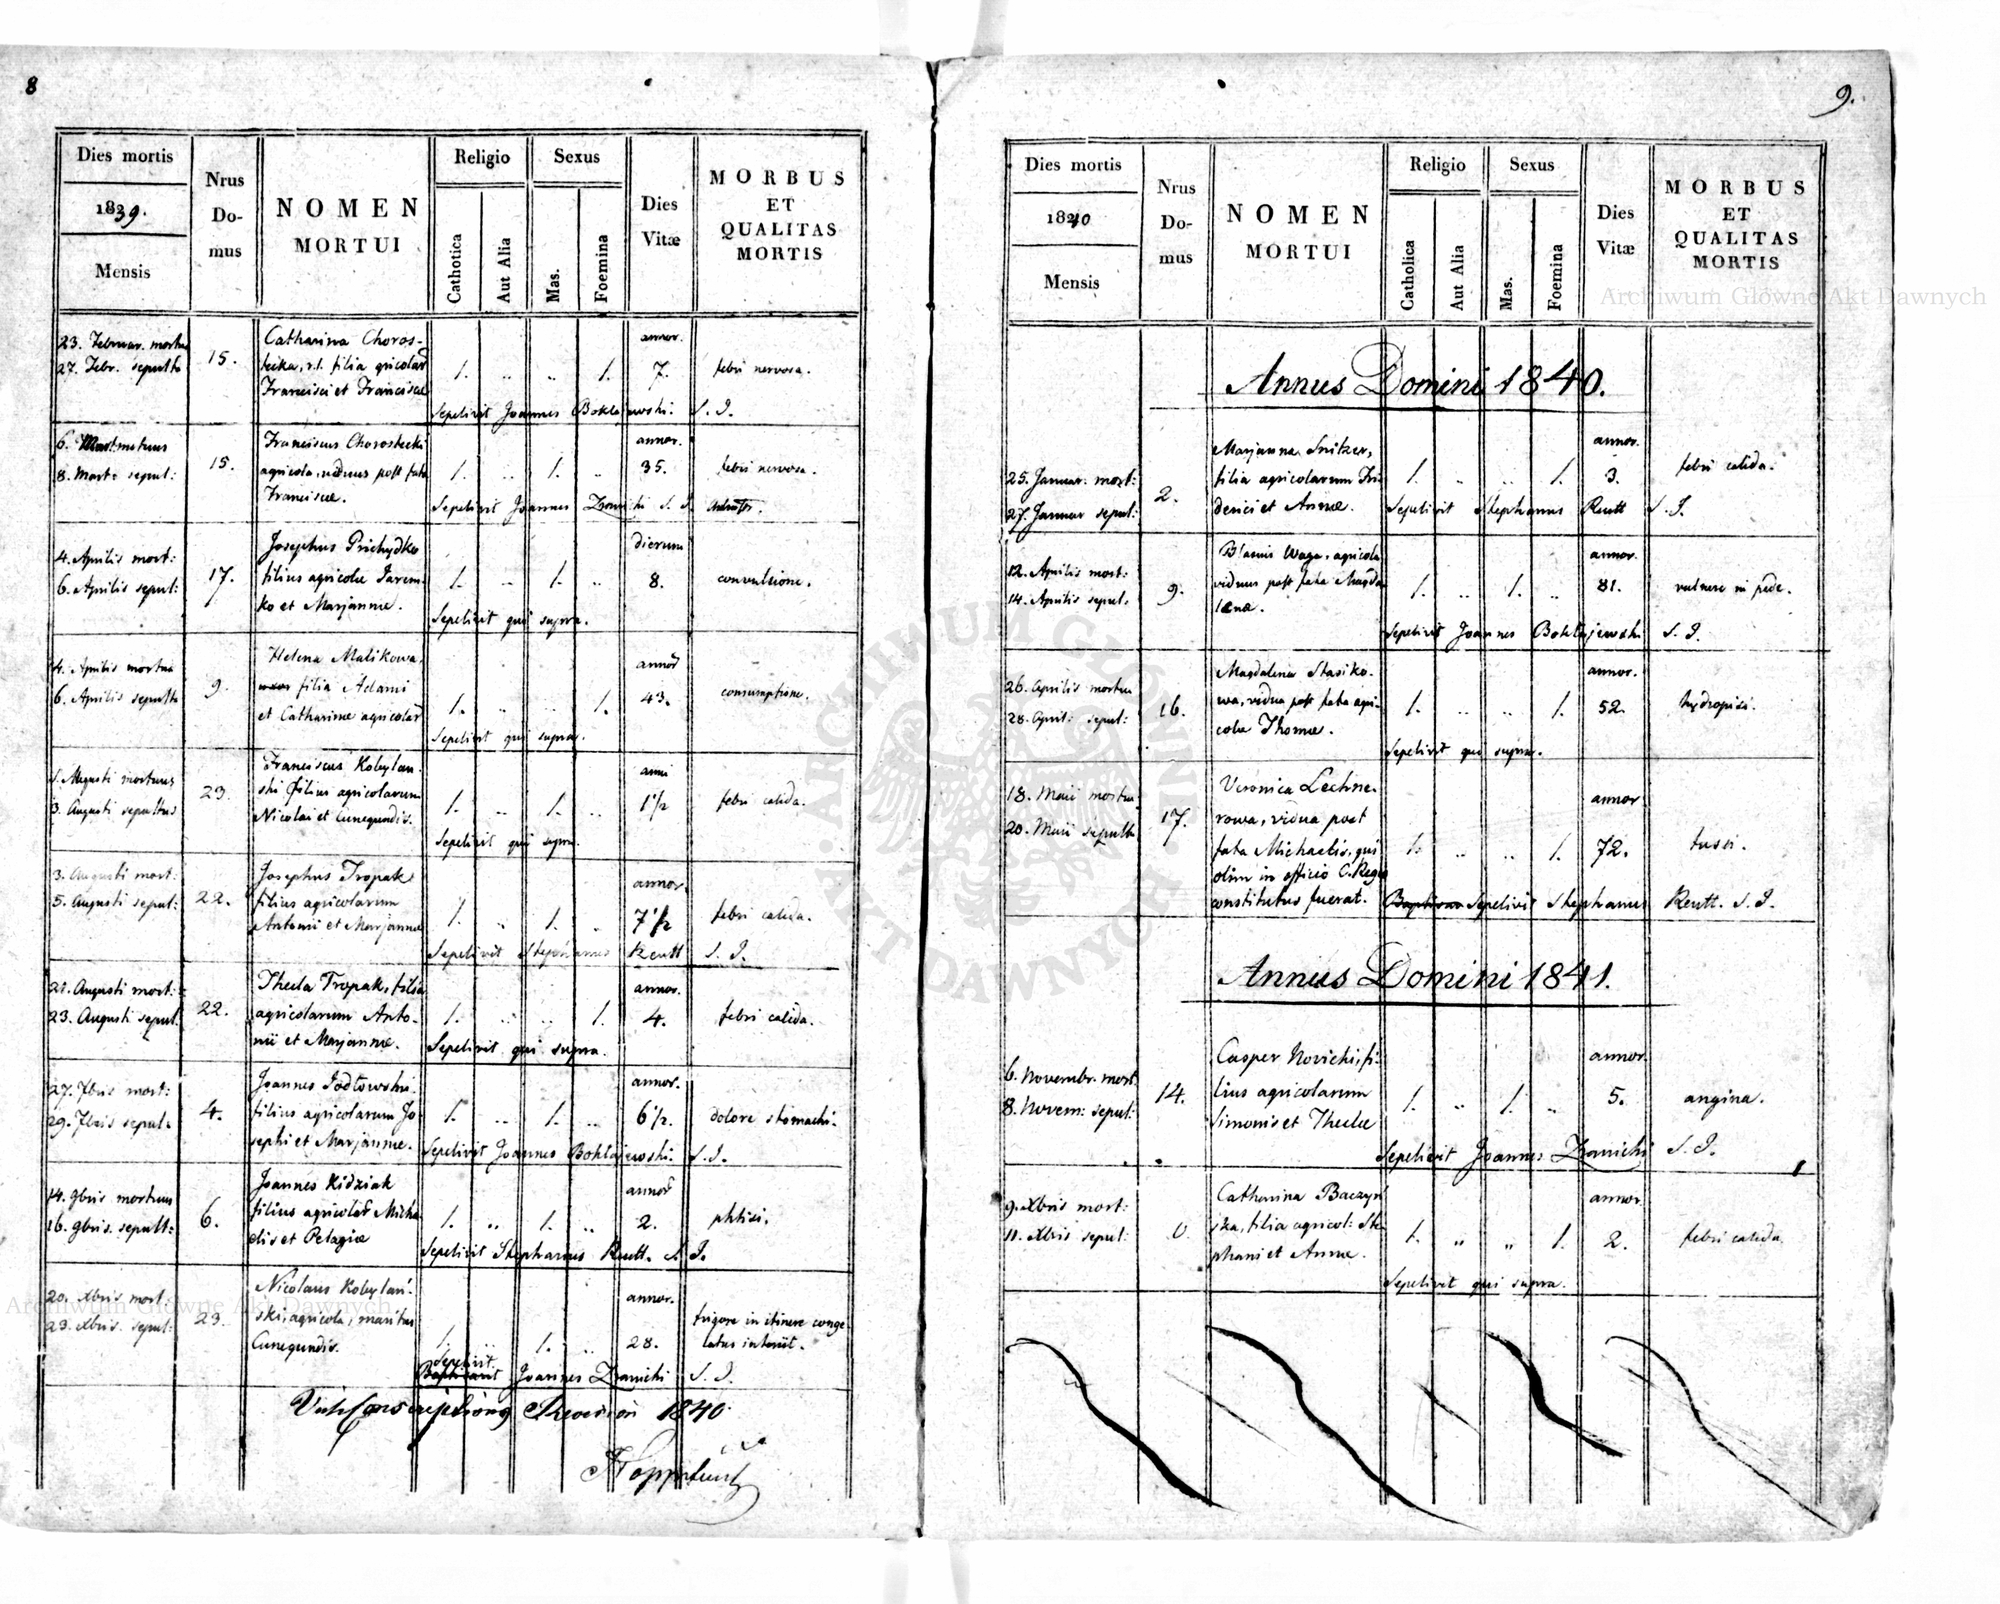 8
Dies mortis
1839.
Mensis
Nrus Do- mus
NOMEN
MORTUI
Religio
Cathotica
Aut Alia
Sexus
Mas.
Foemina
Dies Vitæ
MORBUS
ET
QUALITAS
MORTIS
23. Februar. mortua
27. Febr. sepulta
15.
Catharina Choros-
tecka, r.l. filia agricolar
Francisci et Franciscæ
1. .. .. 1.
annor.
7.
febri nervosa.
Sepelivit Joannes Boklajewski. S. J.
6. Mart. mortuus
8. Mart: sepul:
15.
Franciscus Chorostecki
agricola, viduus post fata
Franciscæ.
1. .. 1. ..
annor.
35.
febri nervosa.
Sepelivit Joannes Zranicki S. J.
4. Aprilis mort:
6. Aprilis sepul:
17.
Josephus Prichydko
filius agricolæ Jarem-
ko et Marjannæ.
1. .. 1. ..
dierum
8.
convulsione.
Sepelivit qui supra.
4. Aprilis mortua
6. Aprilis sepulta
9.
Helena Malikowa,
filia Adami
et Catharinæ agricolar
1. .. .. 1.
annor
43.
consumptione.
Sepelivit qui supra.
1. Augusti mortuus
3. Augusti sepultus
23.
Franciscus Kobylan-
ski filius agricolarum
Nicolai et Cunegundis.
1. .. 1. ..
anni
1 1/2
febri calida.
Sepelivit qui supra.
3. Augusti mort:
5. Augusti sepul:
22.
Josephus Tropak
filius agricolarum
Antonii et Marjannæ
1. .. 1. ..
annor.
7 1/2
febri calida.
Sepelivit Stephanus Reutt S. J.
21. Augusti mort:
23. Augusti sepul.
22.
Thecla Tropak, filia
agricolarum Anto-
nii et Marjannæ.
1. .. .. 1.
annor.
4.
febri calida.
Sepelivit qui supra.
27. 7bris mort:
29. 7bris sepul.
4.
Joannes Jodłowski
filius agricolarum Jo-
sephi et Marjannæ.
1. .. 1. ..
annor.
6 1/2.
dolore stomachi.
Sepelivit Joannes Boklajewski. S. J.
14. 9bris mortuus
16. 9bris. sepult:
6.
Joannes Kidziak
filius agricolar Micha-
elis et Pelagiæ
1. .. 1. ..
annor
2.
phtisi.
Sepelivit Stephanus Reutt. S. J.
20. Xbris mort:
23. Xbris. sepul:
23.
Nicolaus Kobylań-
ski, agricola, maritus
Cunegundis.
1. .. 1. ..
annor.
28.
frigore in itinere conge-
latus interiit.
Sepelivit
Baptisavit Joannes Zranicki S. J.
Conscriptions Revision 1840
9.
Dies mortis
1840
Mensis
Nrus Do- mus
NOMEN
MORTUI
Religio
Catholica
Aut Alia
Sexus
Mas.
Foemina
Dies Vitæ
MORBUS
ET
QUALITAS
MORTIS
Annus Domini 1840.
25. Januar. mort:
27. Januar sepul:
2.
Marjanna Snitzer,
filia agricolarum Fri-
derici et Annæ.
1. .. .. 1.
annor.
3.
febri calida.
Sepelivit Stephanus Reutt S. J.
12. Aprilis mort:
14. Aprilis sepul.
9.
Blasius Waga, agricola
viduus post fata Magda-
lenæ.
1. .. 1. ..
annor.
81.
vulnere in pede.
Sepelivit Joannes Boklajewski S. J.
26. Aprilis mortua
28. April: sepul:
16.
Magdalena Stasiko-
wa, vidua post fata agri-
colæ Thomæ.
1. .. .. 1.
annor.
52.
hydropisi.
Sepelivit qui supra.
18. Maii mortua
20. Maii sepulta
17.
Veronica Lechne-
rowa, vidua post
fata Michaelis, qui
olim in officio C. Regio
constitutus fuerat.
1. .. .. 1.
annor
72.
tussi.
Baptisav Sepelivit Stephanus Reutt. S. J.
Annus Domini 1841.
6. Novembr. mort.
8. Novem: sepul:
14.
Casper Novicki, fi-
lius agricolarum
Simonis et Theclæ
1. .. 1. ..
annor
5.
angina.
Sepelivit Joannes Zranicki S. J.
9. Xbris mort:
11. Xbris sepul:
Catharina Baczyń-
ska, filia agricol: Ste-
phani et Annæ.
1. " " 1.
annor
2.
febri calida
Sepelivit qui supra.
Archiwum Główne Akt Dawnych
Archiwum Główne Akt Dawnych
ARCHIWUM GŁÓWNE
AKT DAWNYCH